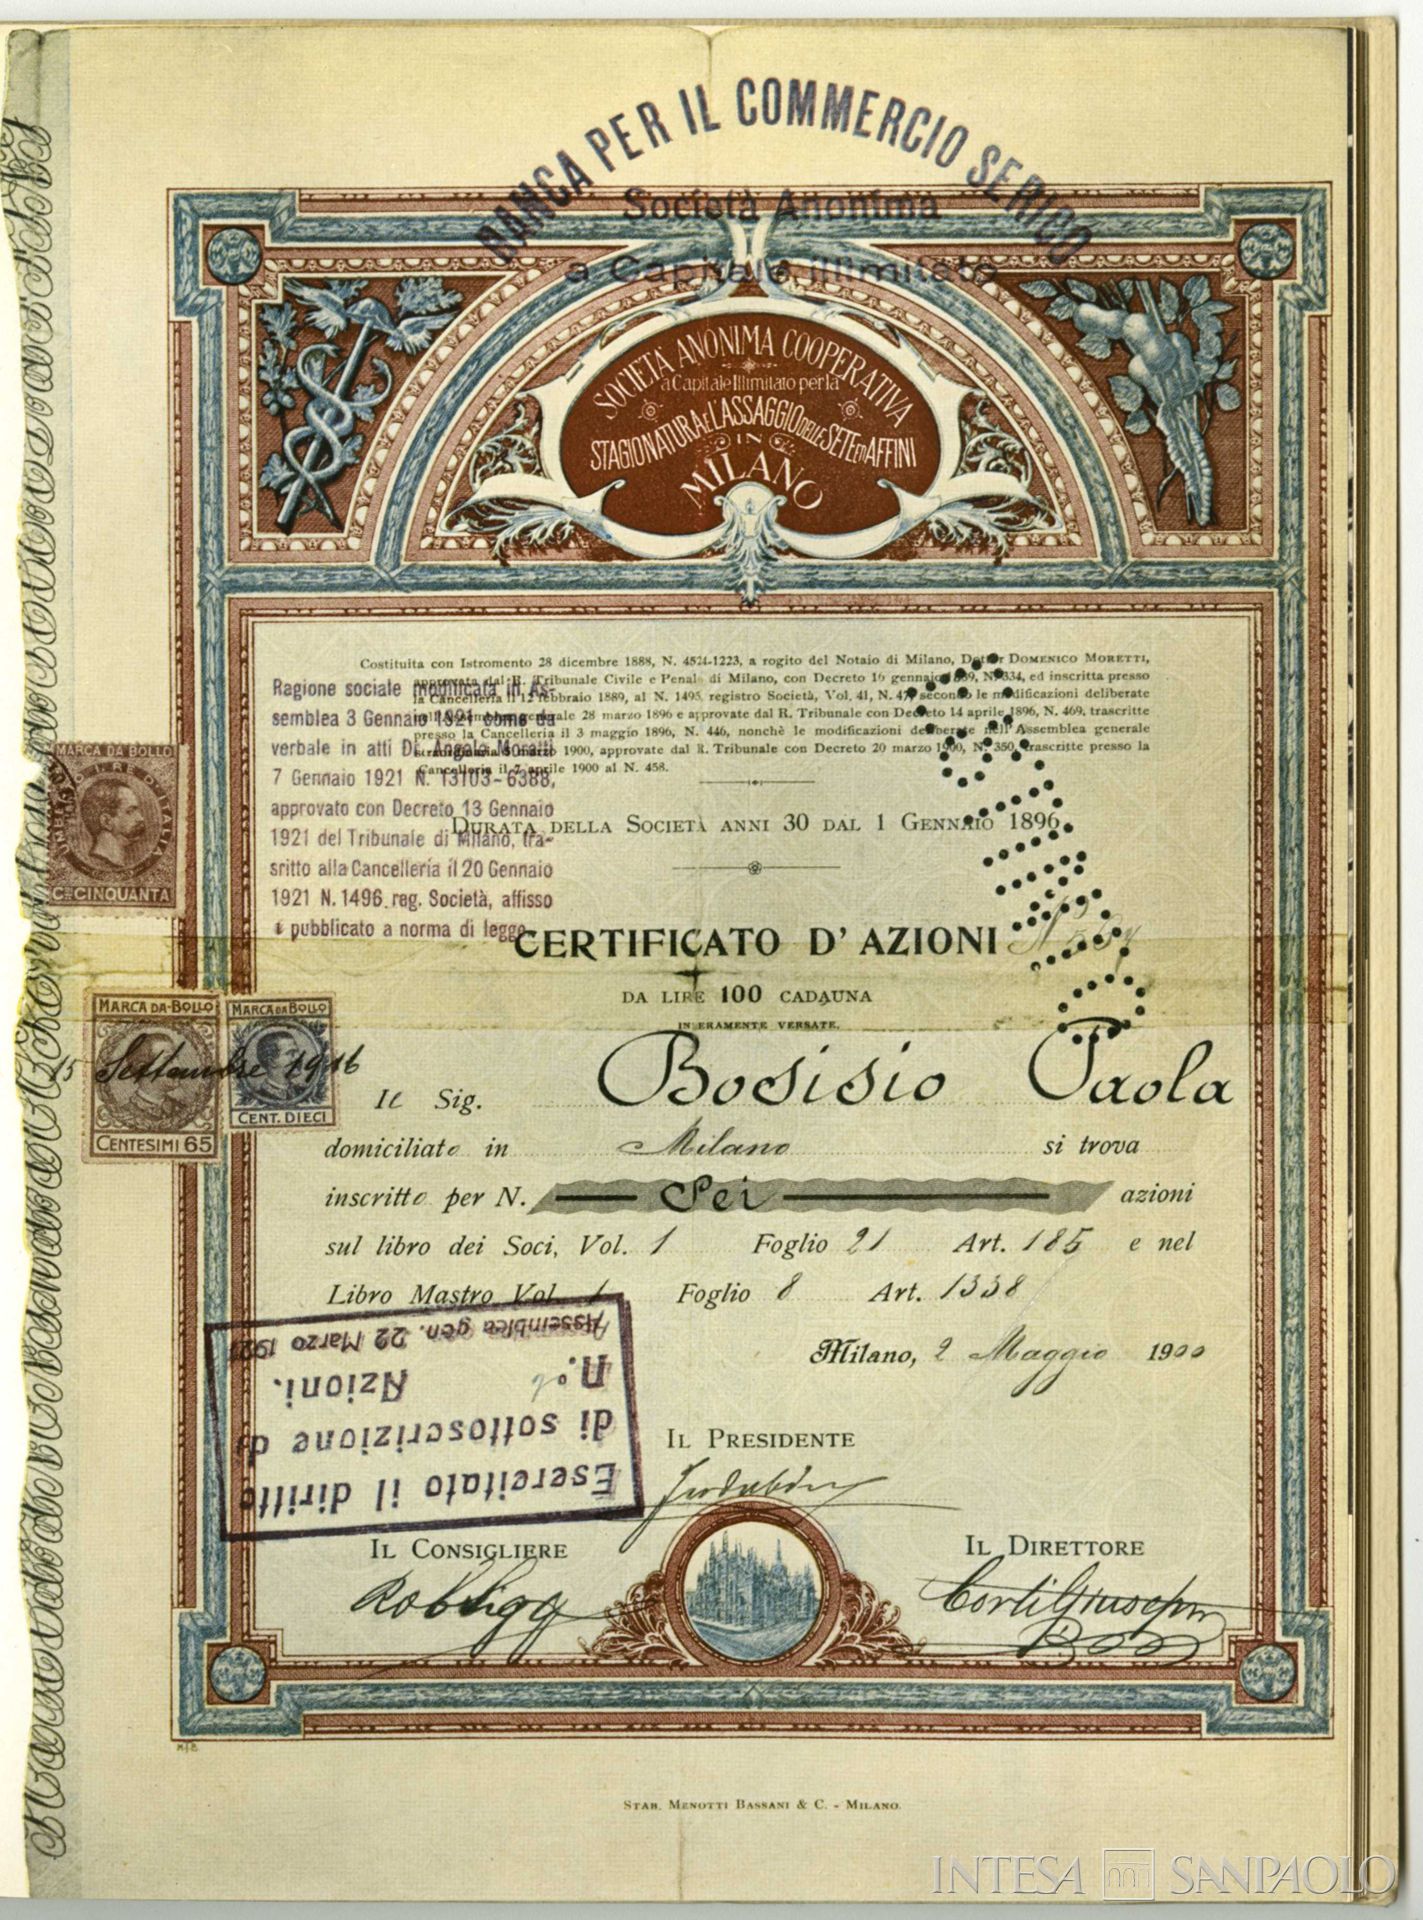 BANCA PER IL COMMERCIO SERICO
Società Anonima
a Capitale illimitato
SOCIETÀ ANONIMA COOPERATIVA
a Capitale Illimitato per la
STAGIONATURA E L'ASSAGGIO DELLE SETE ED AFFINI
IN
MILANO
Costituita con Istromento 28 dicembre 1888, N. 4524-1223, a rogito del Notaio di Milano, Dottor DOMENICO MORETTI,
approvata dal R. Tribunale Civile e Penale di Milano, con Decreto 16 gennaio 1889, N. 334, ed inscritta presso
la Cancelleria il 12 febbraio 1889, al N. 1495, registro Società, Vol. 41, N. 47, secondo le modificazioni deliberate
nell'Assemblea generale 28 marzo 1896 e approvate dal R. Tribunale con Decreto 14 aprile 1896, N. 469, trascritte
presso la Cancelleria il 3 maggio 1896, N. 446, nonchè le modificazioni deliberate nell'Assemblea generale
marzo 1900, approvate dal R. Tribunale con Decreto 20 marzo 1900, N. 350, trascritte presso la
Cancelleria il 7 aprile 1900 al N. 458.
Ragione sociale modificata in As-
semblea 3 Gennaio 1921 come da
verbale in atti Dr. Angelo Moretti
7 Gennaio 1921 N. 13103-6388,
approvato con Decreto 13 Gennaio
1921 del Tribunale di Milano, tra-
scritto alla Cancelleria il 20 Gennaio
1921 N. 1496 reg. Società, affisso
e pubblicato a norma di legge.
MARCA DA BOLLO
UMBERTO I RE D'ITALIA
Cmi CINQUANTA
DURATA DELLA SOCIETÀ ANNI 30 DAL 1 GENNAIO 1896.
CERTIFICATO D'AZIONI N.
DA LIRE 100 CADAUNA
INTERAMENTE VERSATE.
MARCA DA-BOLLO
CENTESIMI 65
MARCA DA BOLLO
CENT. DIECI
15 Settembre 1916
Il Sig. Bosisio Paola
domiciliato in Milano si trova
inscritto per N. Sei azioni
sul libro dei Soci, Vol. 1 Foglio 21 Art. 185 e nel
Libro Mastro Vol. 1 Foglio 8 Art. 1338
Milano, 2 Maggio 1900
Esercitato il diritto
di sottoscrizione di
n. Azioni.
Assemblea gen. 22 Marzo 1921
IL PRESIDENTE
IL CONSIGLIERE
IL DIRETTORE
Corti Giuseppe
STAB. MENOTTI BASSANI & C. - MILANO.
INTESA SANPAOLO